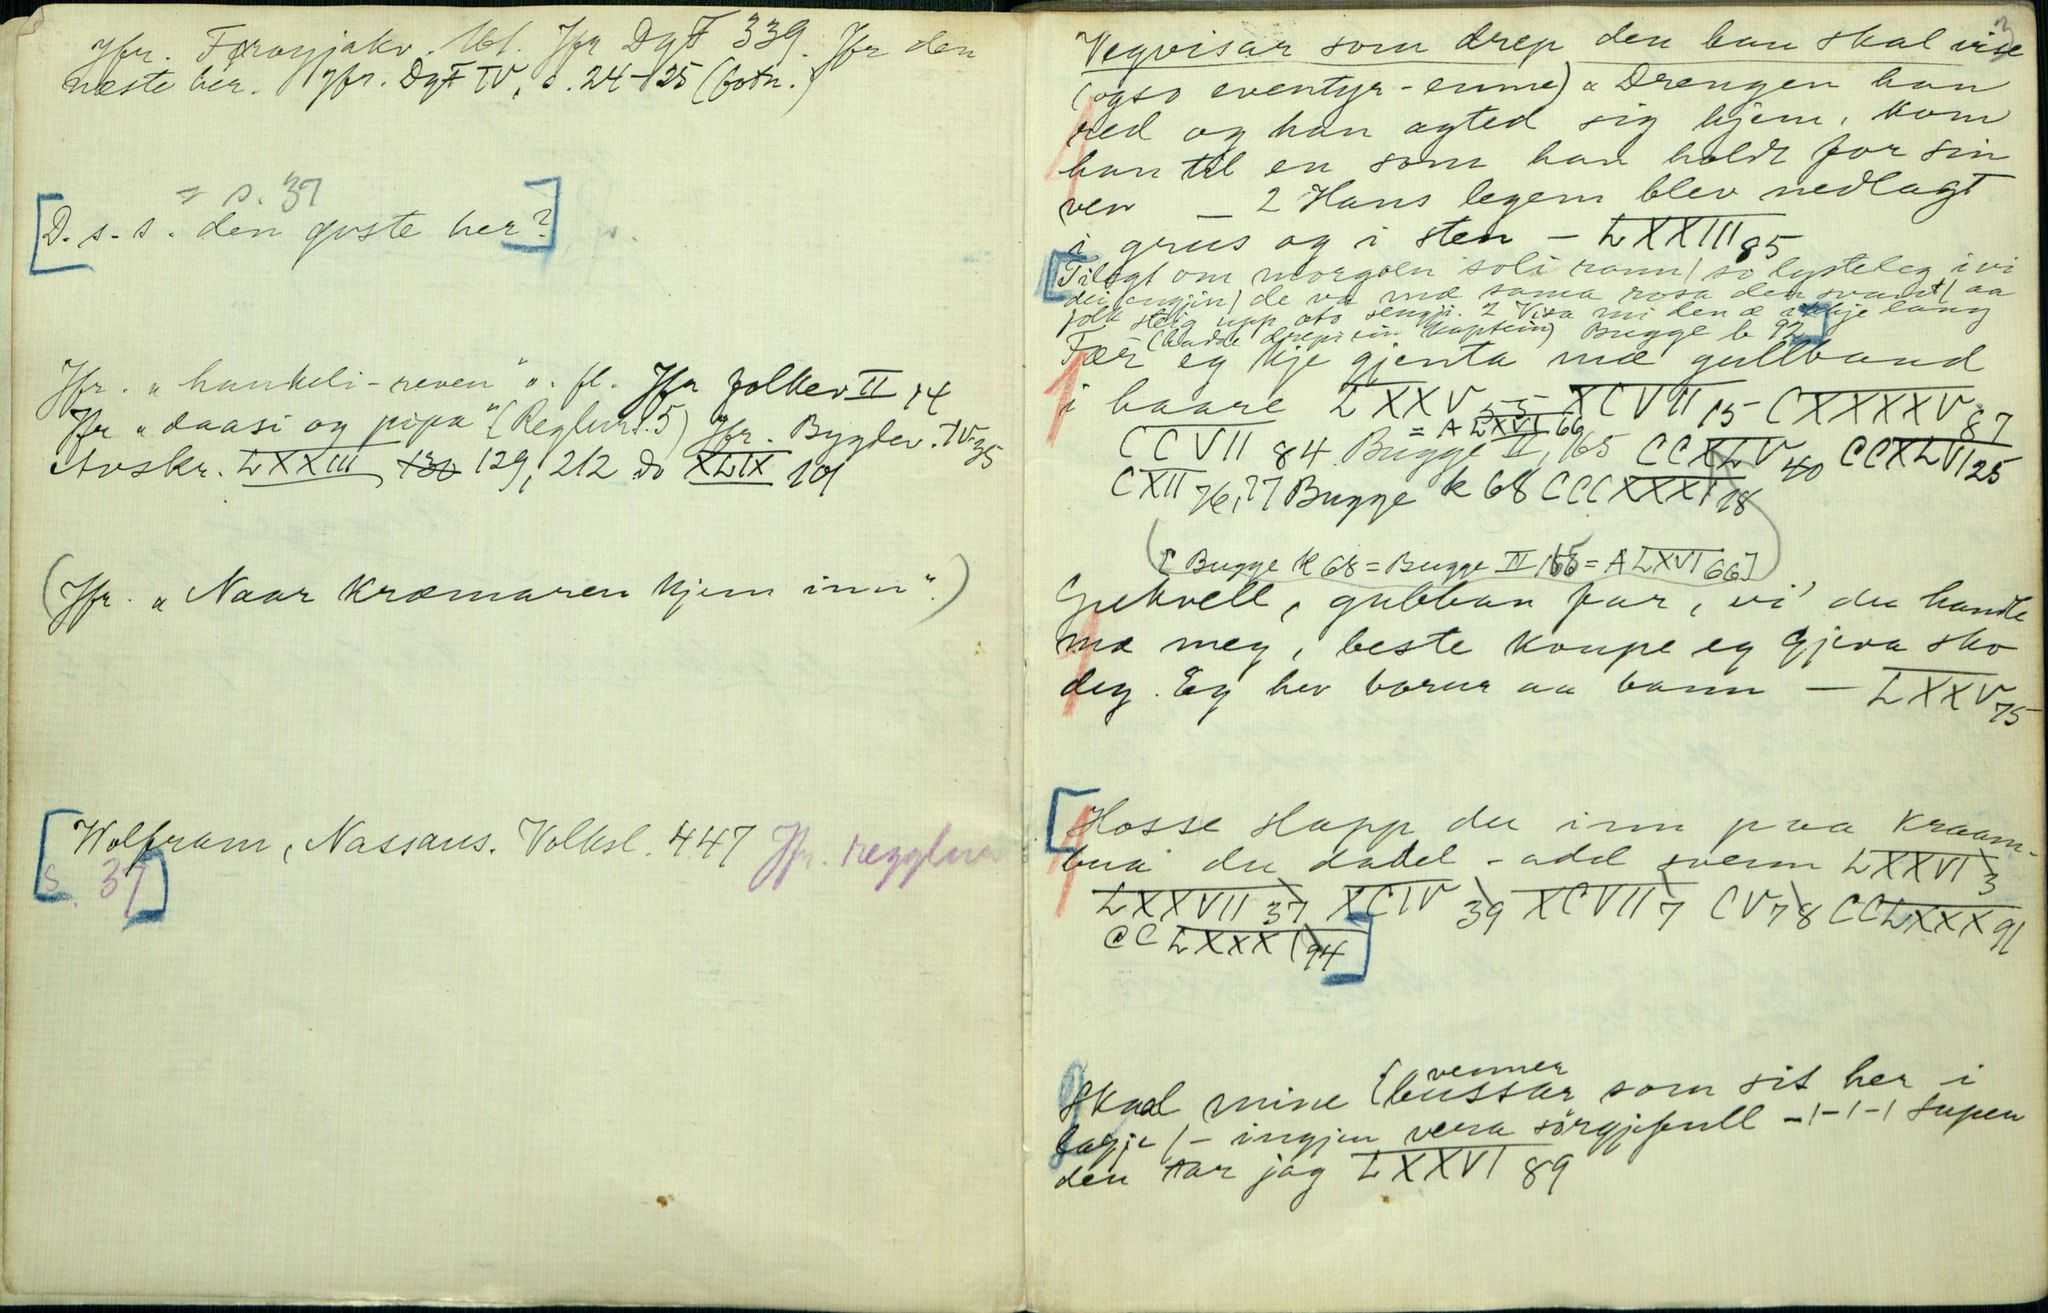 Jfr. Færøyjakv. 161. Jfr DgF 339. Jfr den
næste her. Jfr. DgF IV, s. 24-25 (botn.)
= s. 37
[D. s. s. den øvste her?]
Jfr. "hankeli-reven" o. fl. Jfr folkev II 14
Jfr "daasi og pipa" (Reglur s. 5) Jfr. Bygdev. IV 35
Avskr. LXXIII 129, 212 Do XLIX 101
(Jfr. "Naar kræmaren kjem inn".)
[Wolfram, Nassaus. Volksl. 447 Jfr. regglur
s. 37]
3
Vegvisar som drep den han skal vise
(ogso eventyr-emne) "Drengen han
red og han agted sig hjem, kom
han til en som han holdt for sin
ven — 2 Hans legem blev nedlagt
i grus og i sten — LXXIII 85
[Tilegt om morgoen soli rann / so lysteleg ivi
dei engjin / de va mæ sama rosa den svand / aa
folk steig upp oto sengji. 2 Visa mi den æ inkje lang
(hadde drepi ein kaptein) Bugge b 92]
Fær eg kje gjenta mæ gullband
i haare LXXV 55 XCVII 15 CXXXXV 87
= A LXVI 66
CCVII 84 Bugge II, 165 CCXLV 40 CCXLVI 25
CXII 76, 77 Bugge k 68 CCCXXXI 18
([Bugge k 68 = Bugge II 165 = A LXVI 66])
Gukvell, gubban far, vi' du handle
mæ meg, beste koupe eg gjeva sko
deg. Eg hev varur aa bann — LXXV 75
[Hosse slapp du inn paa kraam-
bua du dadel-adel svenn LXXVI 3
LXXVII 37 XCIV 39 XCVII 7 CV 78 CCLXXX 91
CCLXXXI 94]
venner
Skaal mine {bussar som sit her i
lagje / — ingjen vera sörgjefull -/-/-/ supen
den tar jag LXXVI 89